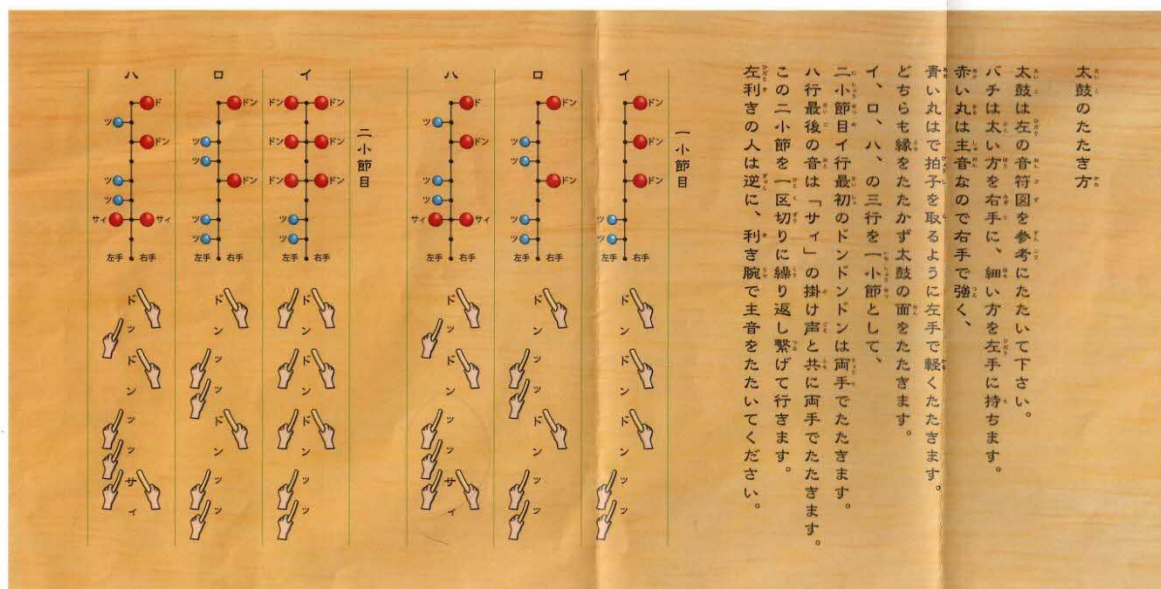 太鼓のたたき方
太鼓は左の音符図を参考にたたいて下さい。
バチは太い方を右手に、細い方を左手に持ちます。
赤い丸は主音なので右手で強く、
青い丸はで拍子を取るように左手で軽くたたきます。
どちらも縁をたたかず太鼓の面をたたきます。
イ、ロ、ハ、の三行を一小節として、
二小節目イ行最初のドンドンドンは両手でたたきます。
ハ行最後の音は「サィ」の掛け声と共に両手でたたきます。
この二小節を一区切りに繰り返し繋げて行きます。
左利きの人は逆に、利き腕で主音をたたいてください。
一小節目
イ
ドン
ドン
ドン
ツ
ツ
左手 右手
ドンドンドンツツ
ロ
ドン
ツ
ツ
ドン
ツ
ツ
左手 右手
ドンツツドンツツ
ハ
ド
ツ
ドン
ツ
ツ
サィ サィ
左手 右手
ドツドンツツサィ
二小節目
イ
ドン ドン
ドン ドン
ドン ドン
ツ
ツ
左手 右手
ドンドンドンツツ
ロ
ドン
ツ
ツ
ドン
ツ
ツ
左手 右手
ドンツツドンツツ
ハ
ド
ツ
ドン
ツ
ツ
サィ サィ
左手 右手
ドツドンツツサィ